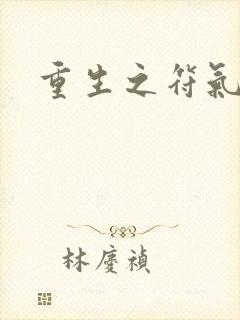 重生之符氣
林慶禎